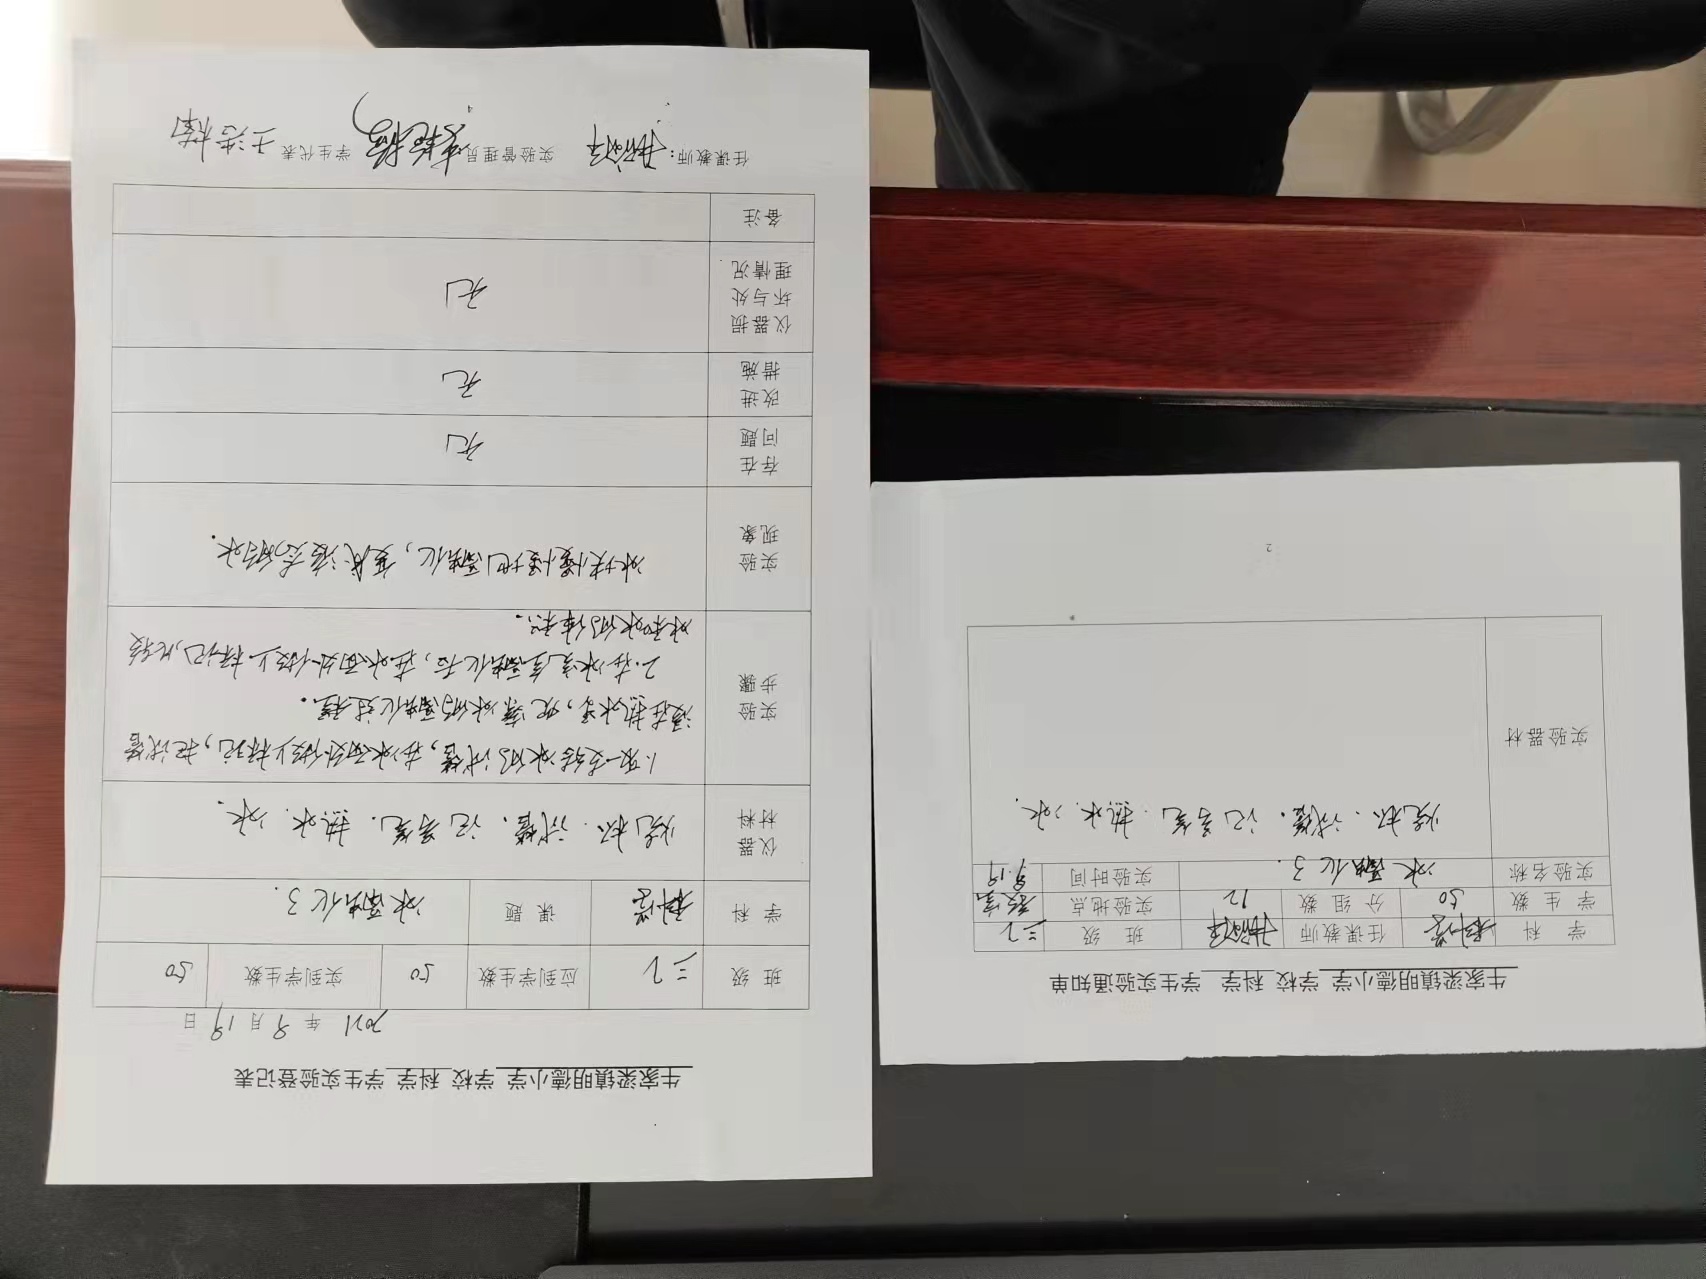 牛家梁镇明德小学 学校 科学 学生实验登记表
2021 年 9 月 19 日
班 级 三2 应到学生数 50 实到学生数 50
学 科 科学 课 题 冰融化了.
仪器材料 烧杯、试管、记号笔、热水、冰.
实验步骤
1.取一支结冰的试管,在冰面处做上标记,把试管
浸在热水里,观察冰的融化过程.
2.在冰完全融化后,在水面处做上标记,比较
冰和水的体积.
实验现象 冰块慢慢地融化,变成液态的水.
存在问题 无
改进措施 无
仪器损坏与处理情况 无
备注
任课教师: 实验管理员 学生代表
牛家梁镇明德小学 学校 科学 学生实验通知单
学 科 科学 任课教师 班 级 三2
学 生 数 50 分 组 数 12 实验地点 教室
实验名称 冰融化了. 实验时间 9.19
实验器材 烧杯、试管、记号笔、热水、冰.
2